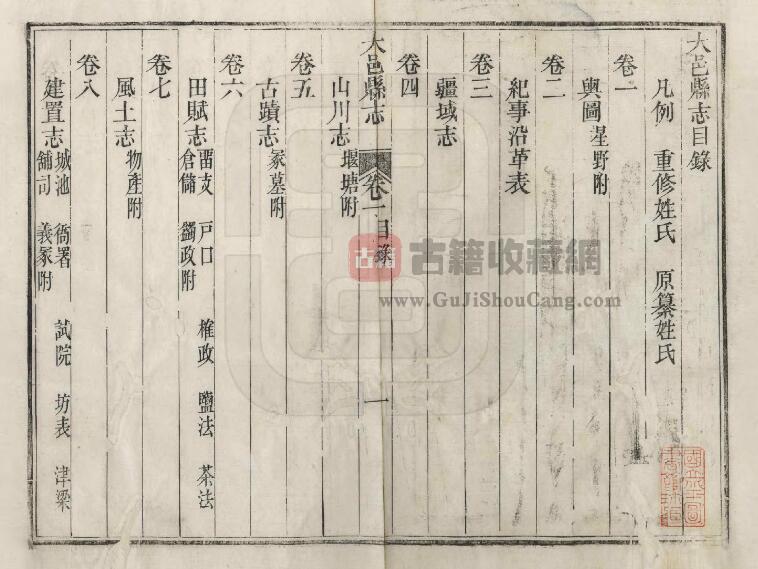 大邑縣志目錄
凡例　重修姓氏　原纂姓氏
卷一
輿圖 星野附
卷二
紀事沿革表
卷三
疆域志
卷四
大邑縣志　卷一目錄　一
山川志 堰塘附
卷五
古蹟志 冢墓附
卷六
田賦志 畱支　戶口　榷政　鹽法　茶法
倉儲　蠲政附
卷七
風土志 物產附
卷八
建置志 城池　衙署　試院　坊表　津梁
舖司　義冢附
古籍 古籍收藏網
www.GuJiShouCang.com